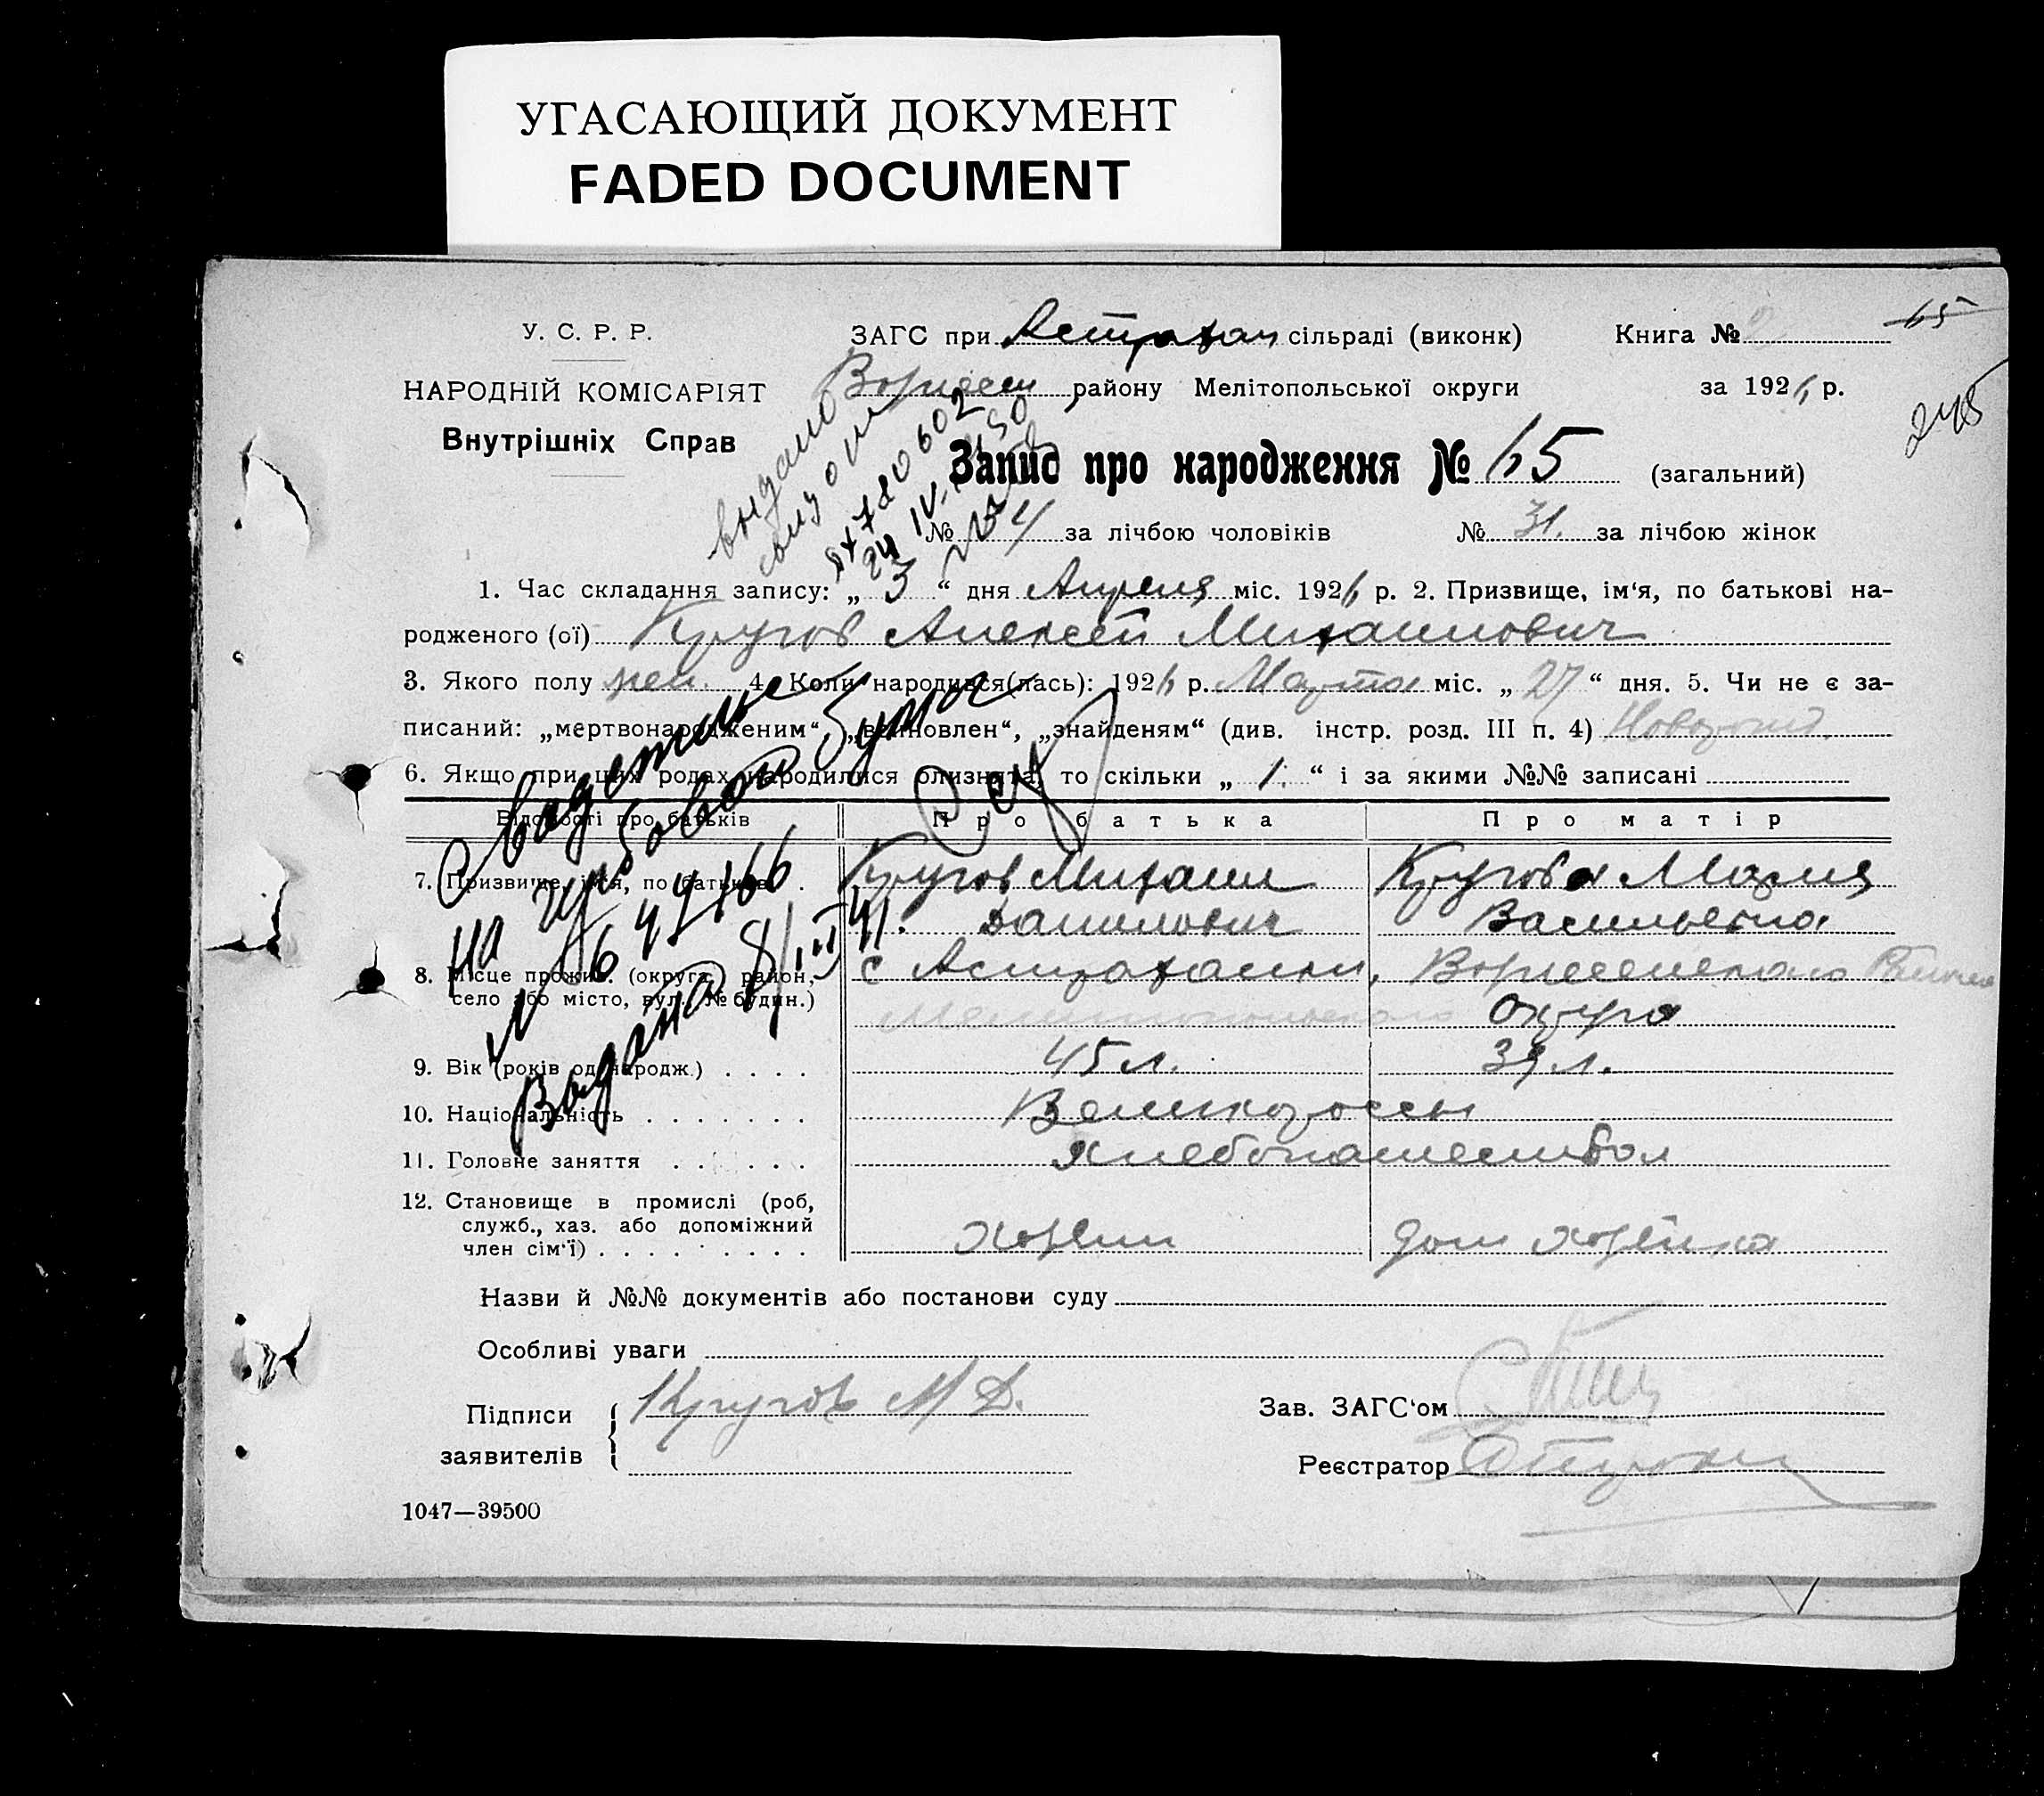 УГАСАЮЩИЙ ДОКУМЕНТ
FADED DOCUMENT
65
У. С. Р. Р.
ЗАГС при Астрахан сільраді (виконк)
Книга №
НАРОДНІЙ КОМІСАРІЯТ
района Мелітопольської округи
за 1926 р.
Внутрішніх Справ
245
Запис про народження № 65 (загальний)
№ за лічбою чоловіків
№ 31. за лічбою жінок
выдано
1. Час складання запису: „ 3 “ дня Апреля міс. 1926 р. 2. Призвище, ім‘я, по батькові на-
родженого (ої) Кругов Алексей Михаилович
3. Якого полу 4. Коли народився(лась): 1926 р. Марта міс. „ 27 “ дня. 5. Чи не є за-
писаний: „мертвонародженим“, „знайденям“ (див. інстр. розд. III п. 4)
6. Якщо при цих родах народилися близнята, то скільки „ 1. “ і за якими №№ записані
Свидетельс
на гербовой бумаге
№ 647166
Выдано 8/III 41.
Відомості про батьків
Про батька
Про матір
7. Призвище, ім‘я, по батькові
Кругов Михаил
Кругова Мария
Данилович
Васильевна
8. Місце прожив. (округа, район,
село або місто, вул., № будин.)
с Астраханки, Вознесенского
Мелитопольского округа
9. Вік (років од народж.)
45 л.
39 л.
10. Національність
Великороссы
11. Головне заняття
Хлебопашеством
12. Становище в промислі (роб,
служб., хаз. або допоміжний
член сім‘ї)
хозяин
дом хозяйка
Назви й №№ документів або постанови суду
Особливі уваги
Підписи
заявителів
Кругов М Д.
Зав. ЗАГС‘ом
Реєстратор
1047—39500